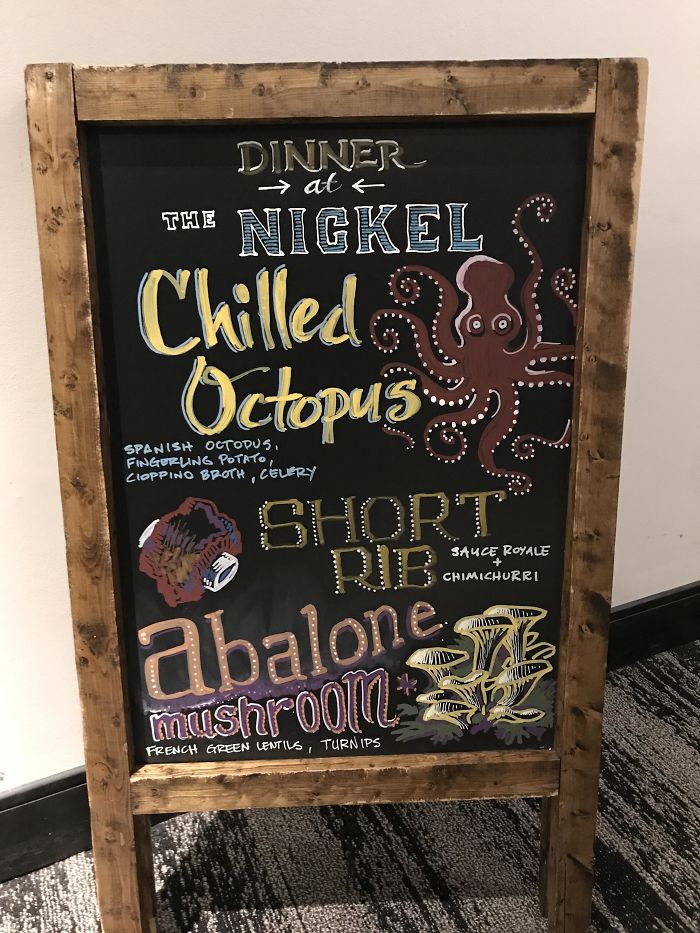 DINNER
→ at ←
THE NICKEL
Chilled
Octopus
SPANISH OCTOPUS,
FINGERLING POTATO,
CIOPPINO BROTH, CELERY
SHORT
RIB
SAUCE ROYALE
+
CHIMICHURRI
abalone
mushroom*
FRENCH GREEN LENTILS, TURNIPS